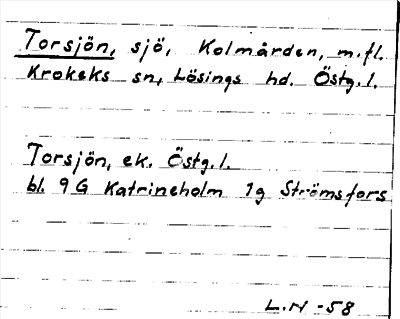 Torsjön, sjö, Kolmården, m.fl.
Krokeks sn, Lösings hd. Östg.l.
Torsjön, ek. Östg.l.
bl. 9G Katrineholm 1g Strömsfors
L.N -58